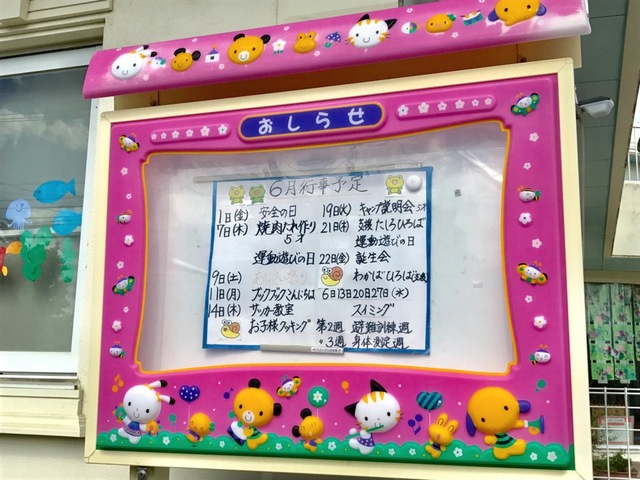 おしらせ
6月行事予定
1日(金) 安全の日
7日(木) 焼肉たれ作り
5才
運動遊びの日
9日(土)
11日(月) ブックブックこんにちは
14日(木) サッカー教室
お子様クッキング
19日(火) キャンプ説明会 5才
21日(木) 支援たしろひろば
運動遊びの日
22日(金) 誕生会
わかばひろば
6日13日20日27日(水)
スイミング
第2週 避難訓練週
〃3週 身体測定週